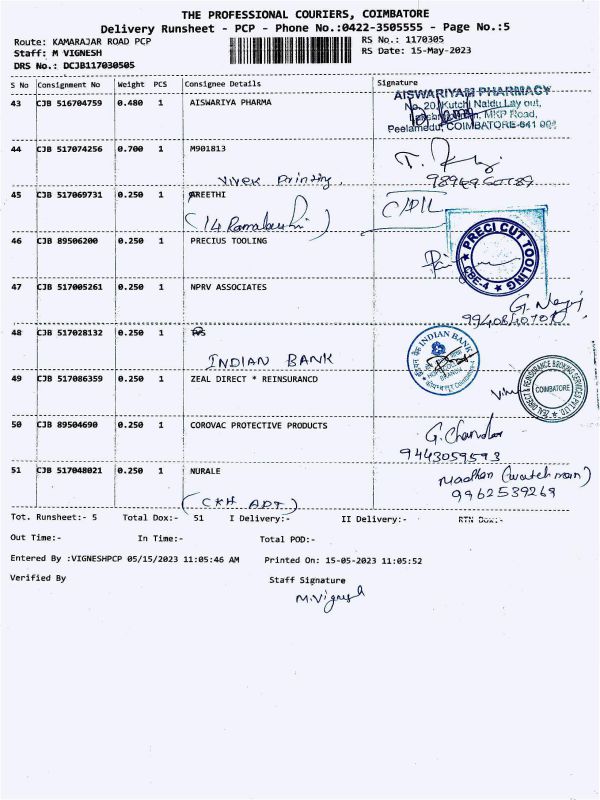 THE PROFESSIONAL COURIERS, COIMBATORE
Delivery Runsheet - PCP - Phone No.:0422-3505555 - Page No.:5
Route: KAMARAJAR ROAD PCP RS No.: 1170305
Staff: M VIGNESH RS Date: 15-May-2023
DRS No.: DCJB117030505
S No Consignment No Weight PCS Consignee Details Signature
43 CJB 516704759 0.480 1 AISWARIYA PHARMA
AISWARIYAM PHARMACY
No. 20, Kutchi Naidu Lay out,
MKP Road,
Peelamedu, COIMBATORE-641 004
44 CJB 517074256 0.700 1 M901813
Vivek Printing.
45 CJB 517069731 0.250 1 PREETHI
46 CJB 89506200 0.250 1 PRECIUS TOOLING
PRECI CUT TOOLING
CBE-4
47 CJB 517005261 0.250 1 NPRV ASSOCIATES
48 CJB 517028132 0.250 1
INDIAN BANK
INDIAN BANK
49 CJB 517086359 0.250 1 ZEAL DIRECT * REINSURANCD
ZEAL DIRECT & REINSURANCE BROKING SERVICES PVT LTD
COIMBATORE
50 CJB 89504690 0.250 1 COROVAC PROTECTIVE PRODUCTS
G. Chandar
9443059593
51 CJB 517048021 0.250 1 NURALE
Madhan (watch man)
9962539269
(CKH APT)
Tot. Runsheet:- 5 Total Dox:- 51 I Delivery:- II Delivery:- RTN Dox:-
Out Time:- In Time:- Total POD:-
Entered By :VIGNESHPCP 05/15/2023 11:05:46 AM Printed On: 15-05-2023 11:05:52
Verified By Staff Signature
M.Vignesh